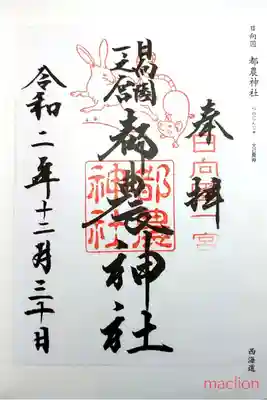 日向国 都農神社
奉拝
日向国一宮
日向國
一之宮
都農神社
都農
神社
令和二年十二月三十日
西海道
maclion